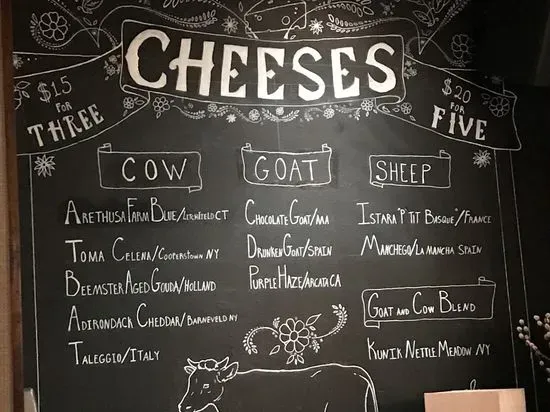 CHEESES
$15
FOR
THREE
$20
FOR
FIVE
COW
ARETHUSA FARM BLUE/LITCHFIELD CT
TOMA CELENA/COOPERSTOWN NY
BEEMSTER AGED GOUDA/HOLLAND
ADIRONDACK CHEDDAR/BARNEVELD NY
TALEGGIO/ITALY
GOAT
CHOCOLATE GOAT/MA
DRUNKEN GOAT/SPAIN
PURPLE HAZE/ARCATA CA
SHEEP
ISTARA "P'TIT BASQUE"/FRANCE
MANCHEGO/LA MANCHA SPAIN
GOAT AND COW BLEND
KUNIK NETTLE MEADOW NY